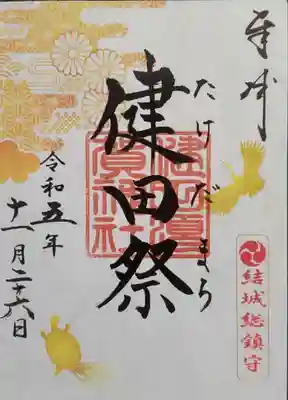 奉拝
たけだまつり
健田祭
健田須
賀神社
令和五年
十一月二十六日
結城総鎮守